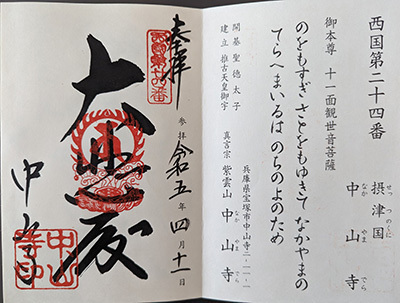 西国第二十四番
摂津国 中山寺
せっ つのくに
なか やま でら
御本尊 十一面観世音菩薩
のをもすぎ さとをもゆきて なかやまの
てらへまいるは のちのよのため
開基 聖徳太子
建立 推古天皇御宇
兵庫県宝塚市中山寺二-一一-一
真言宗 紫雲山 中山寺
なか やま でら
奉拝
西国第廿四番
参拝 令和五年四月十一日
大悲殿
中山寺
中山寺印